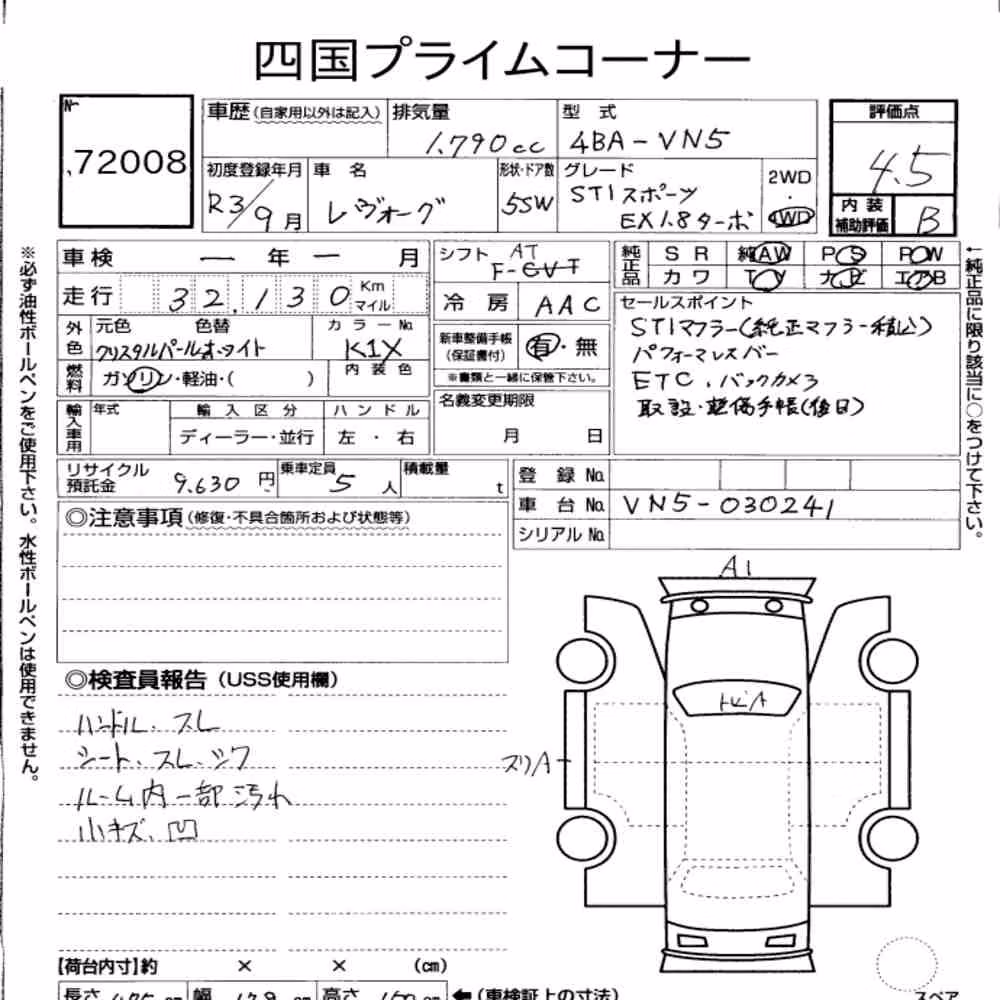 四国プライムコーナー
No.
72008
車歴(自家用以外は記入)
排気量
1.790cc
型 式
4BA-VN5
評価点
4.5
内装
補助評価
B
初度登録年月
R3/9月
車 名
レヴォーグ
形状・ドア数
5SW
グレード
STIスポーツ
EX1.8ターボ
2WD
・
4WD
車検 ー 年 ー 月
走行 32,130 Km マイル
シフト AT
F-CVT
冷 房 AAC
純正品
SR 純AW PS PW
カワ TV ナビ エアB
外色
元色 色替
クリスタルパールホワイト
カラーNo.
K1X
燃料
ガソリン・軽油・( )
内装色
新車整備手帳
(保証書付)
有・無
※書類と一緒に保管下さい。
セールスポイント
STIマフラー(純正マフラー積込)
パフォーマンスバー
ETC、バックカメラ
取説・整備手帳(後日)
輸入車用
年式
輸入区分
ディーラー・並行
ハンドル
左・右
名義変更期限
月 日
リサイクル
預託金
9.630円
乗車定員
5人
積載量
t
登録No.
車台No. VN5-030241
シリアルNo.
◎注意事項(修復・不具合箇所および状態等)
◎検査員報告(USS使用欄)
ハンドル、スレ
シート、スレ、シワ
ルーム内一部汚れ
小キズ、凹
A1
トビA
スリA
【荷台内寸】約 × × (cm)
長さ 475 cm 幅 179 cm 高さ 150 cm
←(車検証上の寸法)
スペア
※必ず油性ボールペンをご使用下さい。水性ボールペンは使用できません。
←純正品に限り該当に○をつけて下さい。